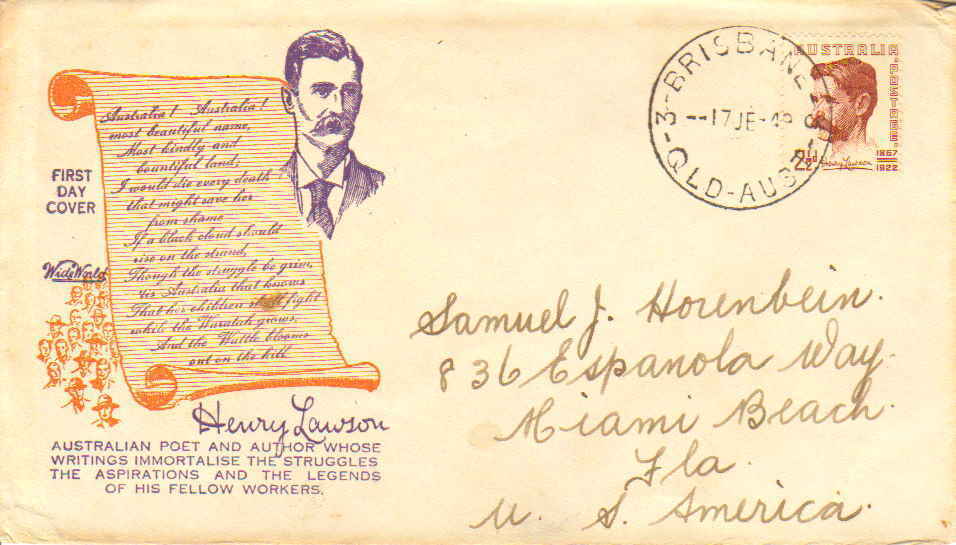 FIRST
DAY
COVER
Wide World
Australia! Australia!
most beautiful name,
Most kindly and
bountiful land;
I would die every death
that might save her
from shame
If a black cloud should
rise on the strand,
Though the struggle be grim,
'tis Australia that knows
That her children shall fight
while the Waratah grows,
And the Wattle blooms
out on the hill
Henry Lawson
AUSTRALIAN POET AND AUTHOR WHOSE
WRITINGS IMMORTALISE THE STRUGGLES
THE ASPIRATIONS AND THE LEGENDS
OF HIS FELLOW WORKERS.
3-BRISBANE
17JE-49
QLD-AUS
AUSTRALIA
POSTAGE
2½d
Henry Lawson
1867
1922
Samuel J. Horenbein.
836 Espanola Way.
Miami Beach.
Fla.
U. S. America.